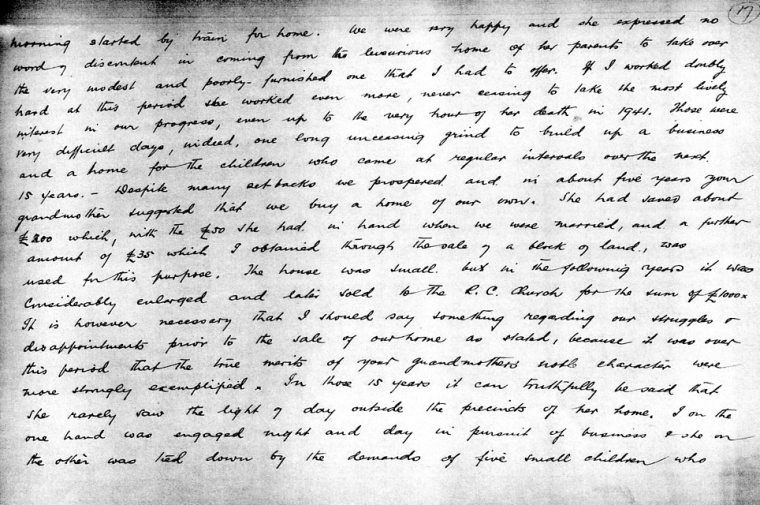 17
morning started by train for home. We were very happy and she expressed no
word of discontent in coming from the luxurious home of her parents to take over
the very modest and poorly-furnished one that I had to offer. If I worked doubly
hard at this period she worked even more, never ceasing to take the most lively
interest in our progress, even up to the very hour of her death in 1941. Those were
very difficult days, indeed, one long unceasing grind to build up a business
and a home for the children who came at regular intervals over the next
15 years. - Despite many setbacks we prospered and in about five years your
grandmother suggested that we buy a home of our own. She had saved about
£200 which, with the £50 she had in hand when we were married, and a further
amount of £35 which I obtained through the sale of a block of land, was
used for this purpose. The house was small but in the following years it was
considerably enlarged and later sold to the R.C. Church for the sum of £1000.
It is however necessary that I should say something regarding our struggles &
disappointments prior to the sale of our home as stated, because it was over
this period that the true merits of your grandmothers noble character were
more strongly exemplified. In those 15 years it can truthfully be said that
she rarely saw the light of day outside the precincts of her home. I on the
one hand was engaged night and day in pursuit of business & she on
the other was tied down by the demands of five small children who